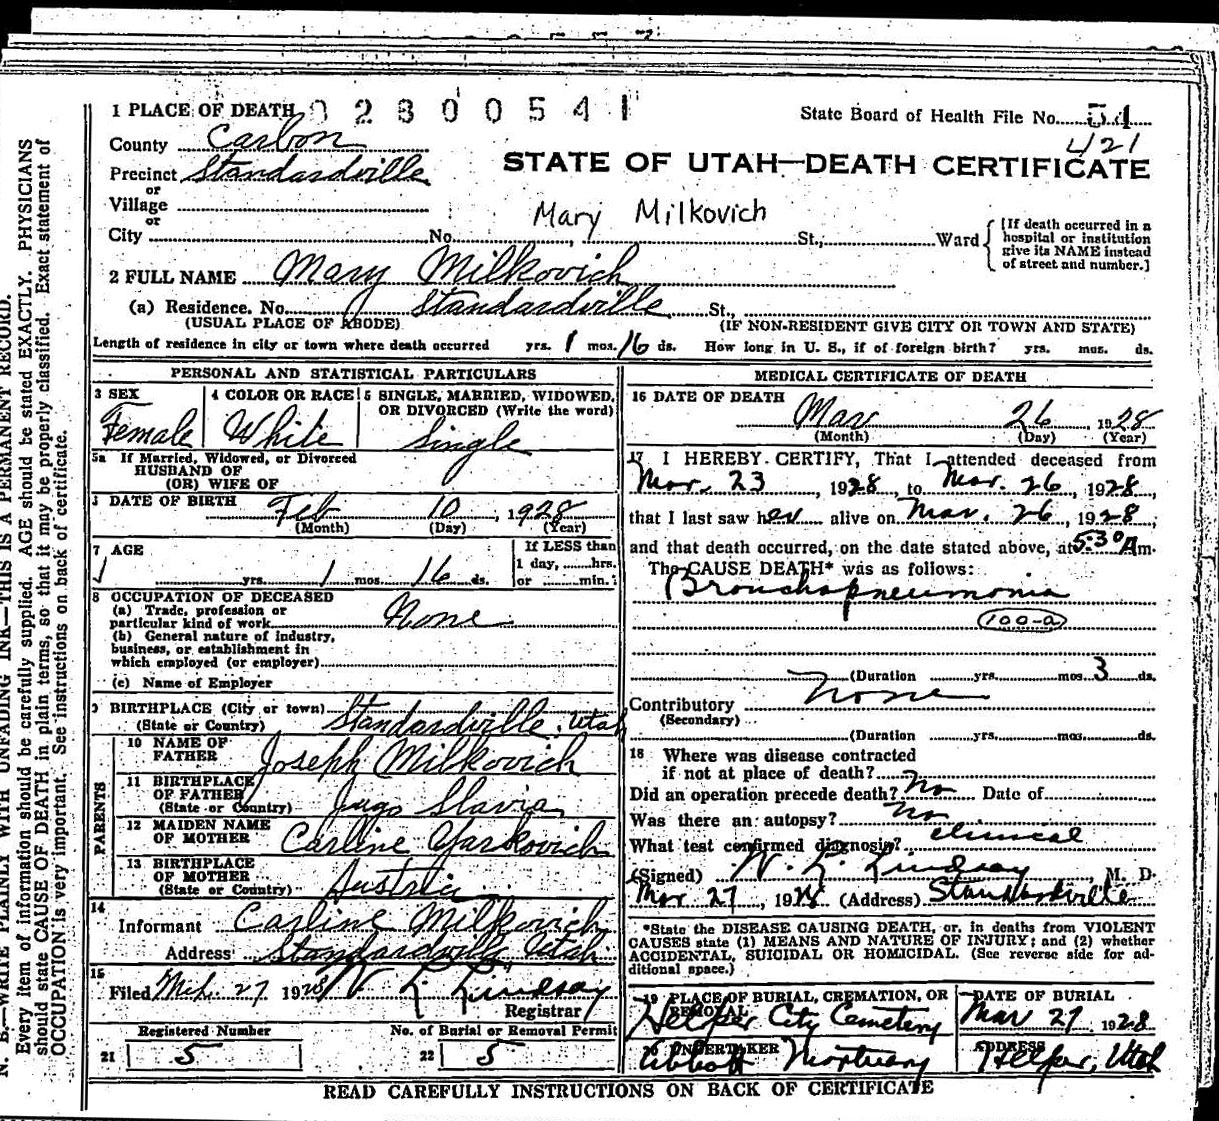 1 PLACE OF DEATH 02800541
State Board of Health File No. 54
421
County Carbon
STATE OF UTAH—DEATH CERTIFICATE
Precinct Standardville
or
Village
or
Mary Milkovich
City No. St., Ward
[If death occurred in a
hospital or institution
give its NAME instead
of street and number.]
2 FULL NAME Mary Milkovich
(a) Residence. No. Standardville St.,
(USUAL PLACE OF ABODE) (IF NON-RESIDENT GIVE CITY OR TOWN AND STATE)
Length of residence in city or town where death occurred yrs. 1 mos. 16 ds. How long in U. S., if of foreign birth? yrs. mos. ds.
PERSONAL AND STATISTICAL PARTICULARS
3 SEX
Female
4 COLOR OR RACE
White
5 SINGLE, MARRIED, WIDOWED,
OR DIVORCED (Write the word)
Single
5a If Married, Widowed, or Divorced
HUSBAND OF
(OR) WIFE OF
DATE OF BIRTH Feb 10, 1928
(Month) (Day) (Year)
7 AGE
yrs. 1 mos. 16 ds.
If LESS than
1 day, hrs.
or min.
8 OCCUPATION OF DECEASED
(a) Trade, profession or
particular kind of work None
(b) General nature of industry,
business, or establishment in
which employed (or employer)
(c) Name of Employer
9 BIRTHPLACE (City or town) Standardville, Utah
(State or Country)
PARENTS
10 NAME OF
FATHER Joseph Milkovich
11 BIRTHPLACE
OF FATHER
(State or Country) Jugo Slavia
12 MAIDEN NAME
OF MOTHER Carline Yarkovich
13 BIRTHPLACE
OF MOTHER
(State or Country) Austria
14
Informant Carline Milkovich
Address Standardville Utah
15
Filed Mch. 27 1928 W L Lindsay
Registrar
Registered Number
21 5
No. of Burial or Removal Permit
22 5
MEDICAL CERTIFICATE OF DEATH
16 DATE OF DEATH
Mar 26 1928
(Month) (Day) (Year)
17 I HEREBY CERTIFY, That I attended deceased from
Mar. 23, 1928, to Mar. 26, 1928,
that I last saw her alive on Mar. 26, 1928,
and that death occurred, on the date stated above, at 5:30 A m.
The CAUSE DEATH* was as follows:
Bronchopneumonia
100-a
(Duration yrs. mos. 3 ds.
Contributory None
(Secondary)
(Duration yrs. mos. ds.
18 Where was disease contracted
if not at place of death? No
Did an operation precede death? No Date of
Was there an autopsy? No
What test confirmed diagnosis? clinical
(Signed) W. L. Lindsay, M. D.
Mar 27, 1928 (Address) Standardville
*State the DISEASE CAUSING DEATH, or, in deaths from VIOLENT
CAUSES state (1) MEANS AND NATURE OF INJURY; and (2) whether
ACCIDENTAL, SUICIDAL OR HOMICIDAL. (See reverse side for ad-
ditional space.)
19 PLACE OF BURIAL, CREMATION, OR
REMOVAL
Helper City Cemetery
DATE OF BURIAL
Mar 27 1928
20 UNDERTAKER
Mortuary
ADDRESS
Helper, Utah
READ CAREFULLY INSTRUCTIONS ON BACK OF CERTIFICATE
N. B.—WRITE PLAINLY WITH UNFADING INK—THIS IS A PERMANENT RECORD.
Every item of information should be carefully supplied. AGE should be stated EXACTLY. PHYSICIANS
should state CAUSE OF DEATH in plain terms, so that it may be properly classified. Exact statement of
OCCUPATION is very important. See instructions on back of certificate.